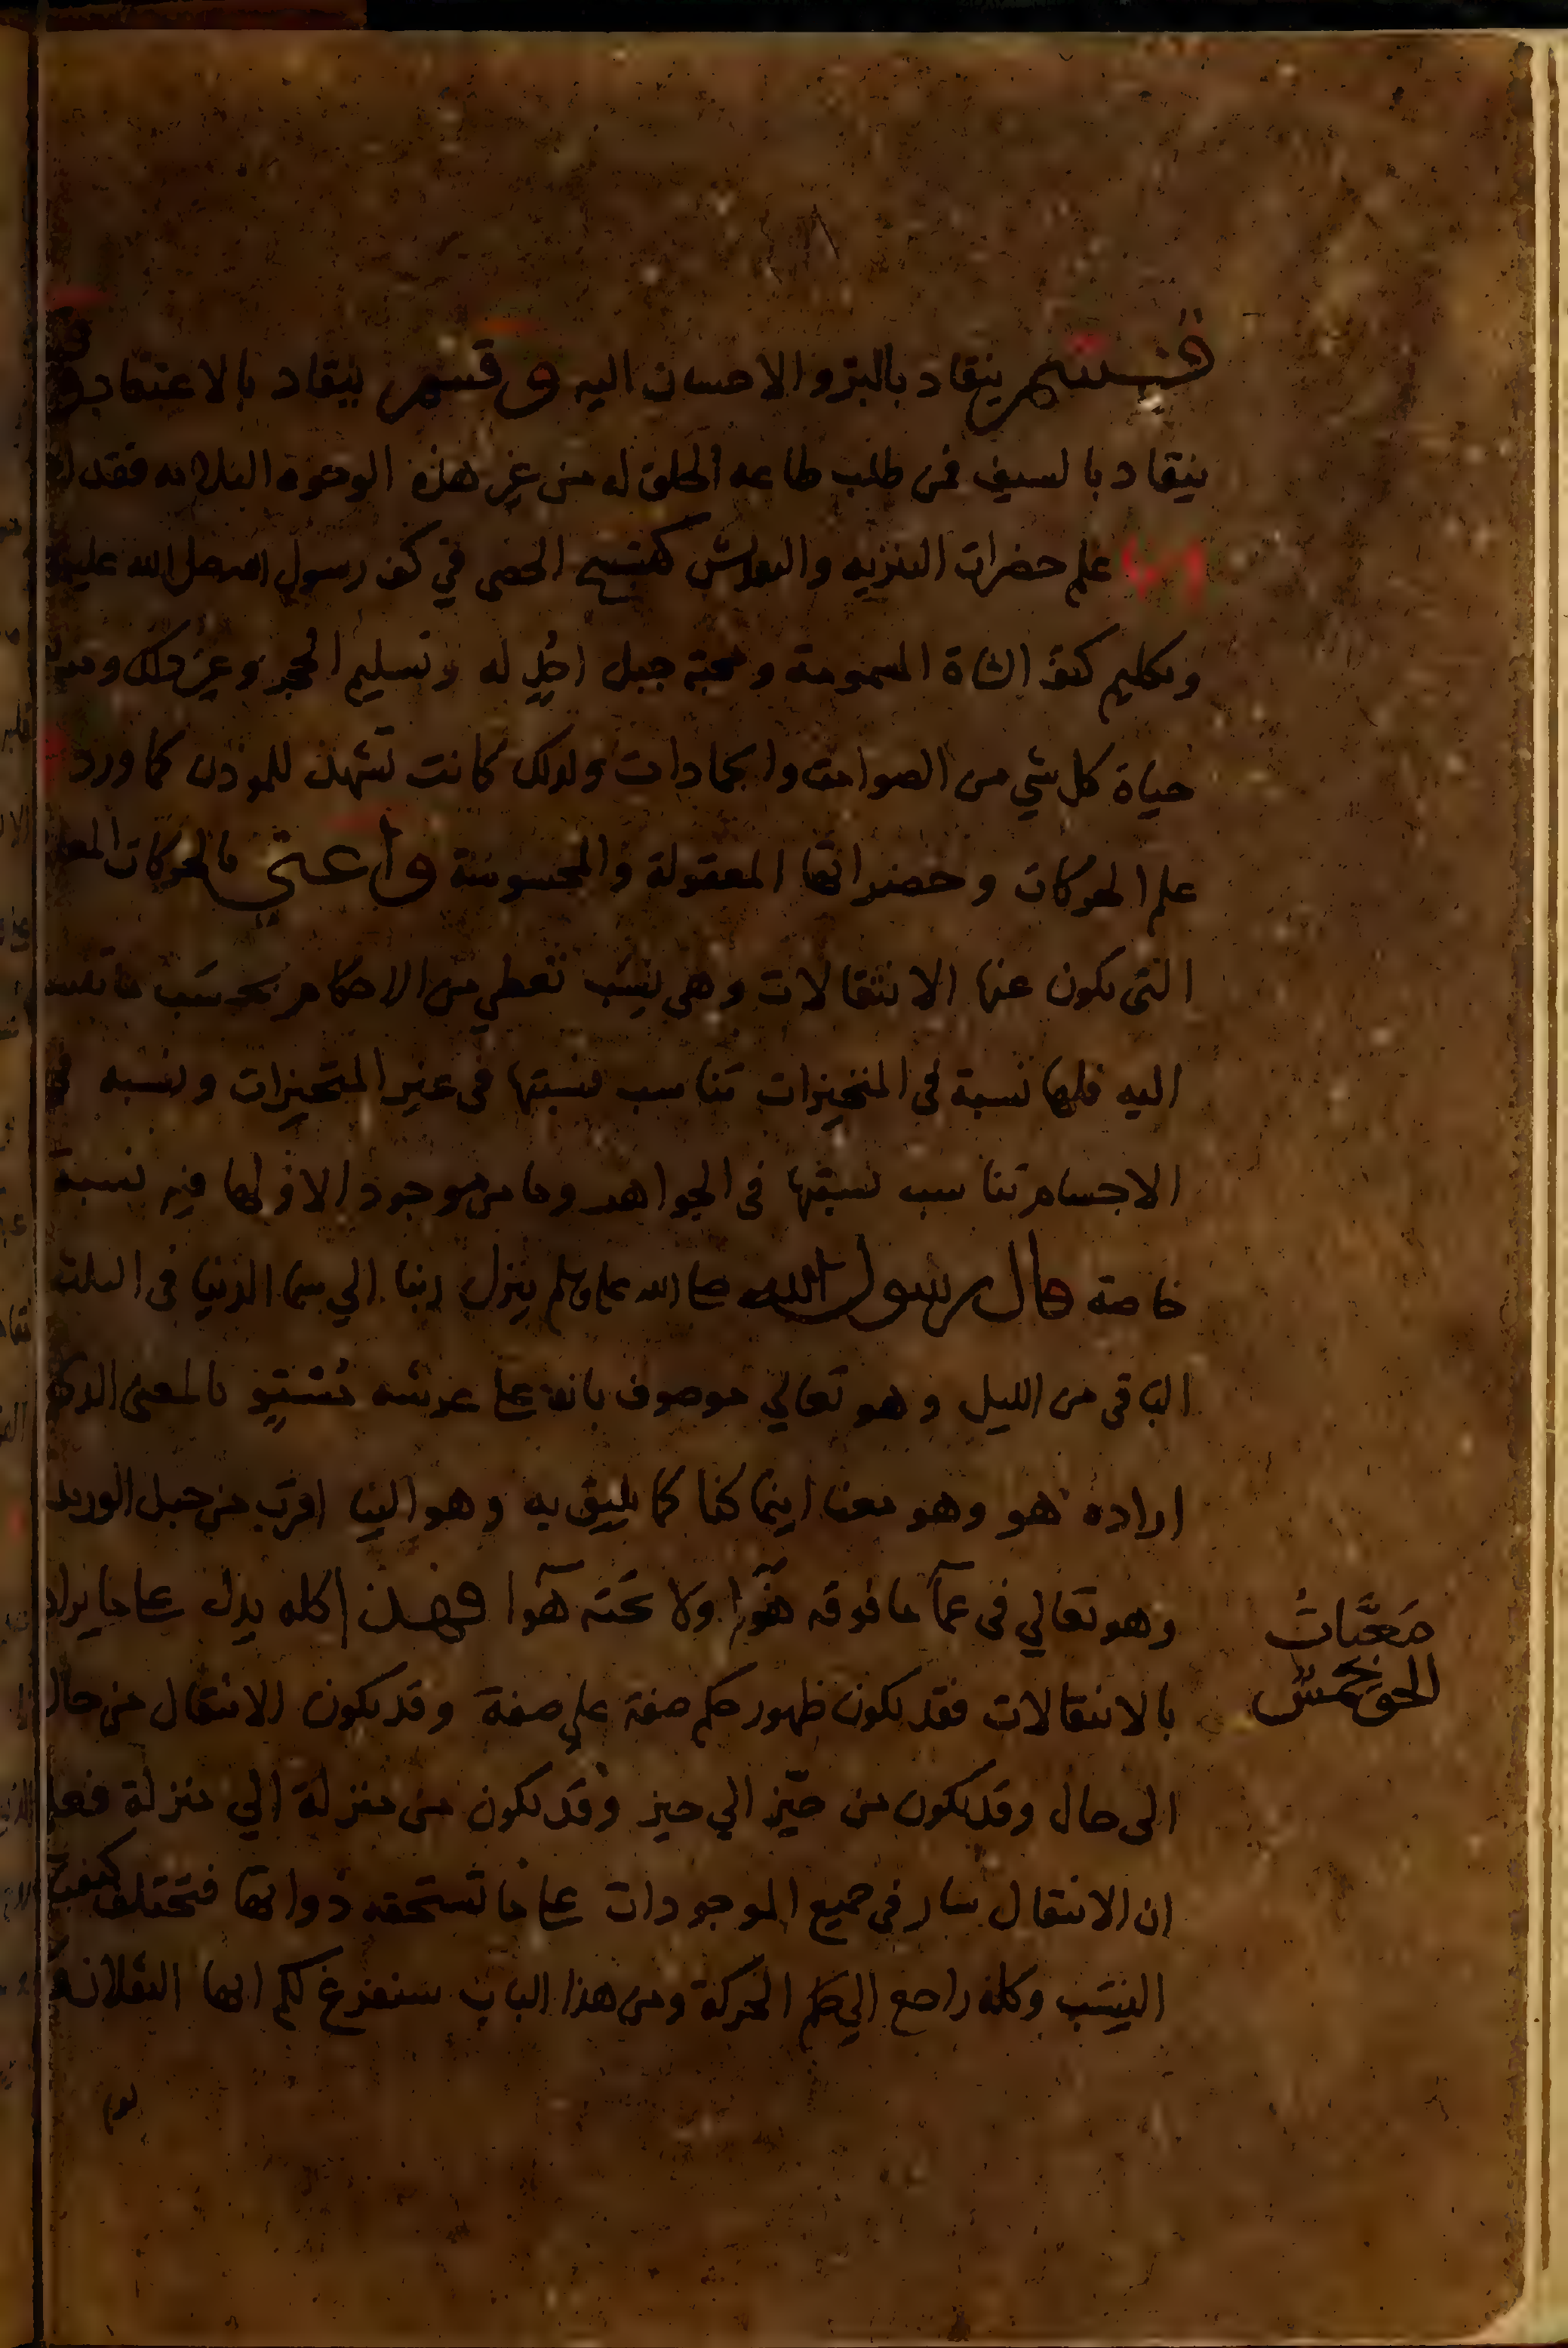 قسم ينقاد بالبرّ والاحسان اليه وقسم ينقاد بالاعتقاد و
ينقاد بالسيف فمن طلب طاعه الخلق له من غير هذه الوجوه الثلاثه فقد
علم حضرات التنزيه والتقديس كتسبيح الحصى في كف رسول الله صلى الله عليه
وتكليم كتف الشاة المسمومة ومحبة جبل احُدٍ له وتسليم الحجر وغير ذلك
حياة كل شي من الصوامت والجمادات ولذلك كانت تشهد للموذن كما ورد
علم الحركات وحضراتها المعقولة والمحسوسة واعني بالحركات
التي تكون عنها الانتقالات وهي نِسَب تعطي من الاحكام بحسَب ما تنسب
اليه فلها نسبة في المتحيزات تناسب نسبتها في غير المتحيزات ونسبه في
الاجسام تناسب نسبتها في الجواهر وما من موجود الا ولها فيه نسبة
خاصة قال رسول الله صلى الله عليه وسلم ينزل ربنا الي سما الدنيا في الثلث
الباقي من الليل وهو تعالي موصوف بانه على عرشه مُسْتوٍ بالمعنى الذي
اراده هو وهو معنا اينما كنا كما يليق به وهو الينا اقرب من حبل الوريد
وهو تعالي في عمآ ما فوقه هَوآ ولا تحته هوآ فهذا كله يدل على ما يراد
بالانتقالات فقد يكون ظهور حكم صفة علي صفة وقد يكون الانتقال من حال
الى حال وقد يكون من حيّز الي حيز وقد يكون من منزلة الي منزلة
ان الانتقال سار في جميع الموجودات على ما تستحقه ذواتها فتختلف
النِسَب وكله راجع الي حكم الحركة ومن هذا الباب سنفرغ لكم ايها الثقلان
مَعيَّاتُ
الحق خمسٌ